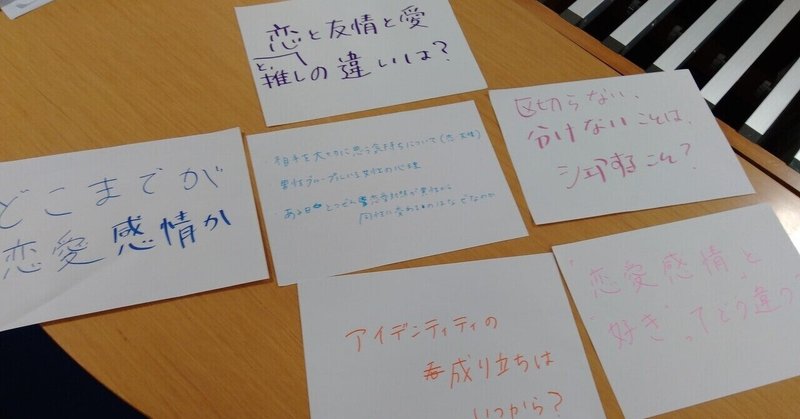 恋と友情と愛
と、
推しの違いは?
どこまでが
恋愛感情か
・相手を大切に思う気持ちについて(恋・友情)
・男性グループにいる女性の心理
・ある日とつぜん恋愛対象が異性から
同性に変わるのはなぜなのか
区切らない、
分けないことは、
シェアすること?
アイデンティティの
成り立ちは
いつから?
"恋愛感情"と
"好き"ってどう違う?